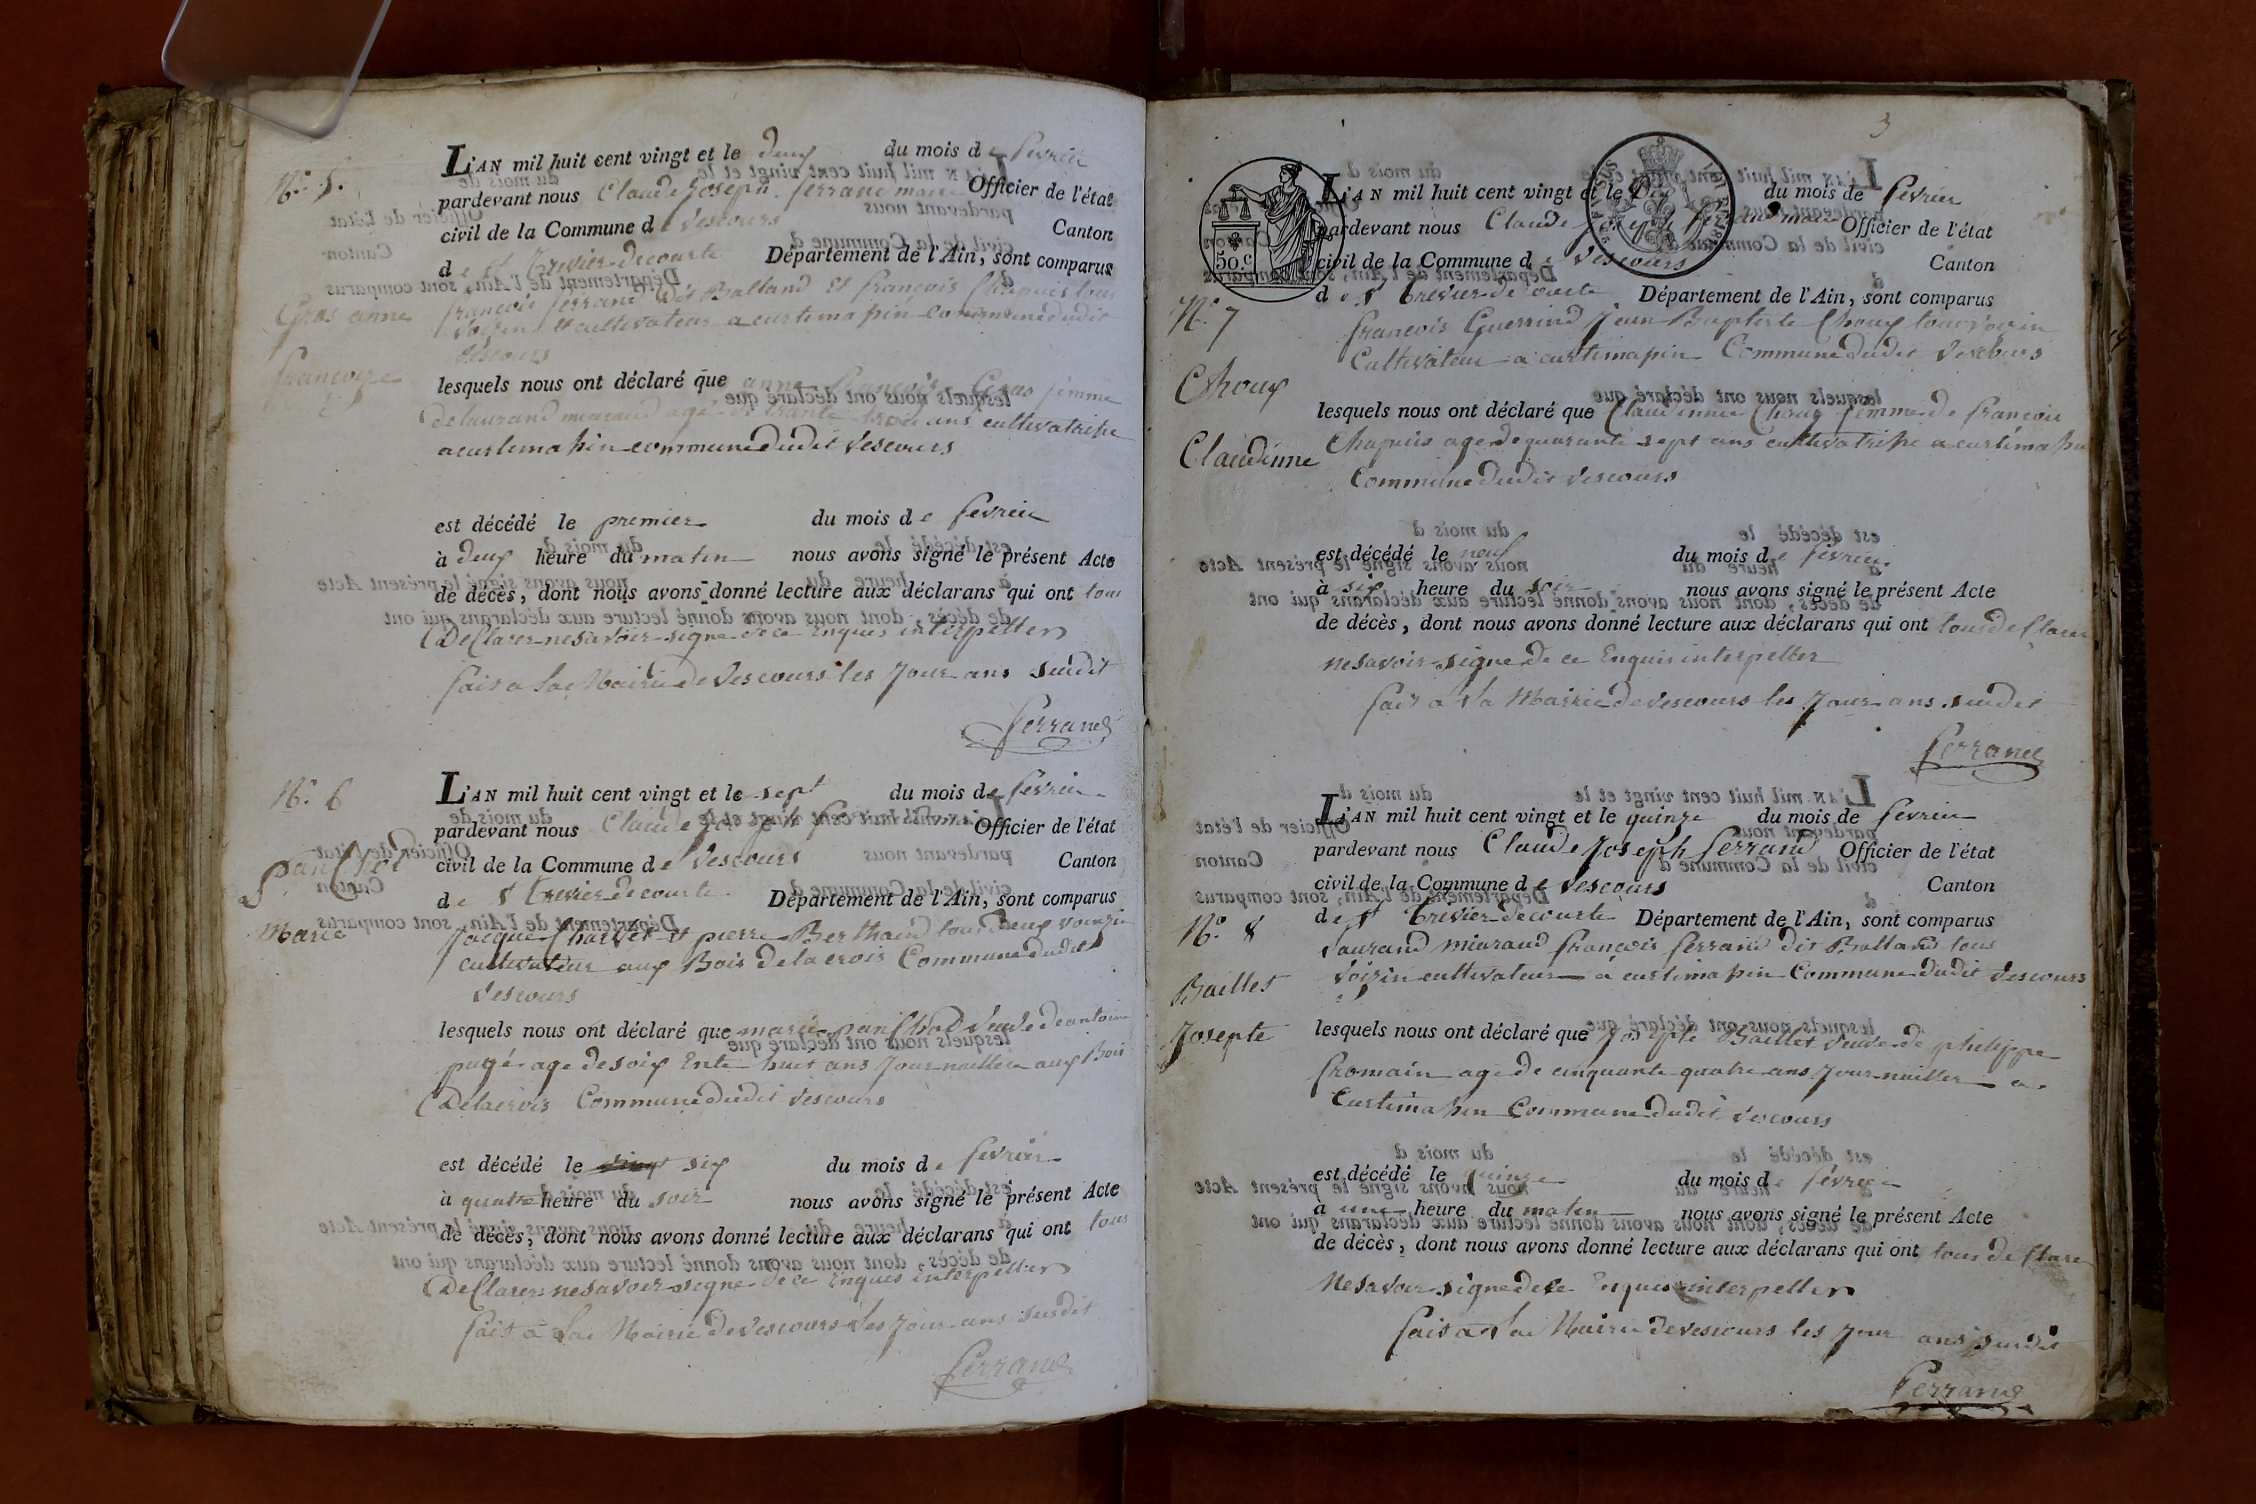 N.° 5.
Gras anne
françoise
L'AN mil huit cent vingt et le deux du mois de fevrier
pardevant nous Claude Joseph ferrand maire Officier de l'état
civil de la Commune de Vescours Canton
de st trevier de courte Département de l'Ain, sont comparus
françois ferrand dit Balland et françois Chapuis tous
voisin et cultivateur a curtimapin commune dudit
Vescours
lesquels nous ont déclaré que anne françoise Gras femme
de laurand miaraud agé de trante trois ans cultivatrise
a curtimapin commune dudit Vescours
est décédé le premier du mois de fevrier
à deux heure du matin nous avons signé le présent Acte
de décès, dont nous avons donné lecture aux déclarans qui ont tous
De Clarer ne savoir signe de ce Enquis interpeller
fait a la Mairie de Vescours les Jour ans sudit
ferrand
N.° 6
panChot
Marie
L'AN mil huit cent vingt et le sept du mois de fevrier
pardevant nous Claude Joseph Officier de l'état
civil de la Commune de Vescours Canton
de st trevier de courte Département de l'Ain, sont comparus
Jacque Charvet et pierre Berthaud tous deux voizin
cultivateur aux Bois de la crois Commune dudit
Vescours
lesquels nous ont déclaré que marie panChot veuve de antoine
pugé age de soix Ente huit ans Journallier aux Bois
De la crois Commune dudit Vescours
est décédé le six du mois de fevrier
à quatre heure du soir nous avons signé le présent Acte
de décès, dont nous avons donné lecture aux déclarans qui ont tous
De Clarer ne savoir signe de ce Enquis interpeller
fait a la Mairie de Vescours les Jour ans sudit
ferrand
3
50 C
N.° 7
Choux
Claudinne
L'AN mil huit cent vingt et le Dix du mois de fevrier
pardevant nous Claude Joseph ferrand maire Officier de l'état
civil de la Commune de Vescours Canton
de st trevier de courte Département de l'Ain, sont comparus
francois Guerrind Jean Baptiste Choux tous voisin
Cultivateur a curtimapin Commune dudit Vescours
lesquels nous ont déclaré que Claudinne Choux femme de francois
Chapuis age de quarante sept ans cultivatrise a curtimapin
Commune dudit Vescours
est décédé le neuf du mois de fevrier
à six heure du soir nous avons signé le présent Acte
de décès, dont nous avons donné lecture aux déclarans qui ont tous de Clarer
ne savoir signe de ce Enquis interpeller
fait a la Mairie de Vescours les Jour ans sudit
ferrand
N.° 8
Baillet
Josepte
L'AN mil huit cent vingt et le quinze du mois de fevrier
pardevant nous Claude Joseph ferrand Officier de l'état
civil de la Commune de Vescours Canton
de st trevier de courte Département de l'Ain, sont comparus
Laurand miaraud francois ferrand dit Balland tous
Voizin cultivateur a curtimapin Commune dudit Vescours
lesquels nous ont déclaré que Josepte Baillet veuve de philippe
fromain age de cinquante quatre ans Journallier a
Curtimapin Commune dudit Vescours
est décédé le quinze du mois de février
à une heure du matin nous avons signé le présent Acte
de décès, dont nous avons donné lecture aux déclarans qui ont tous de Clare
Ne savoir signe de ce Enquis interpeller
fait a la Mairie de Vescours les Jour ans sudit
ferrand